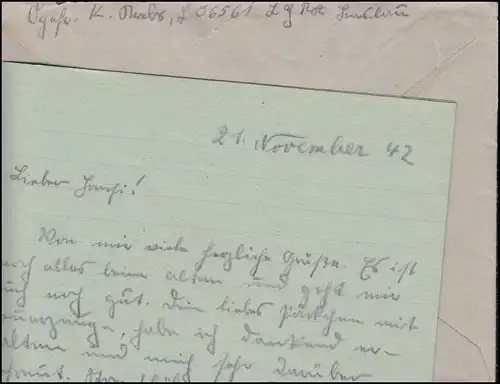 Ogefr. K. Krebs, L 06561 L g Pa Breslau
21. November 42
Lieber Hansi!
Von mir viele herzliche Grüße. Es ist
noch alles beim alten und geht mir
auch noch gut. Dein liebes Päckchen mit
habe ich dankend er-
alten und mich sehr darüber